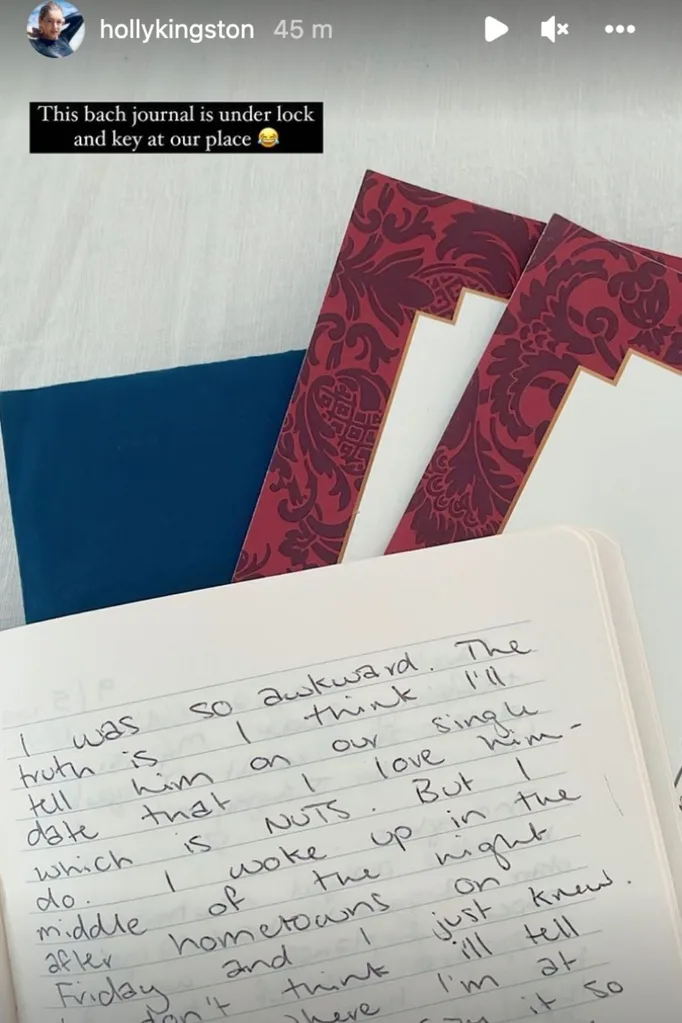 hollykingston 45 m
This bach journal is under lock
and key at our place 😂
I was so awkward. The
truth is I think I'll
tell him on our single
date that I love him-
which is NUTS. But I
do. I woke up in the
middle of the night
after hometowns on
Friday and I just knew.
don't think i'll tell
here I'm at
it so